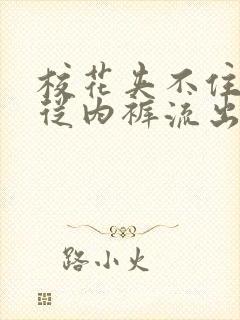 校花夹不住
从内裤流出
路小火